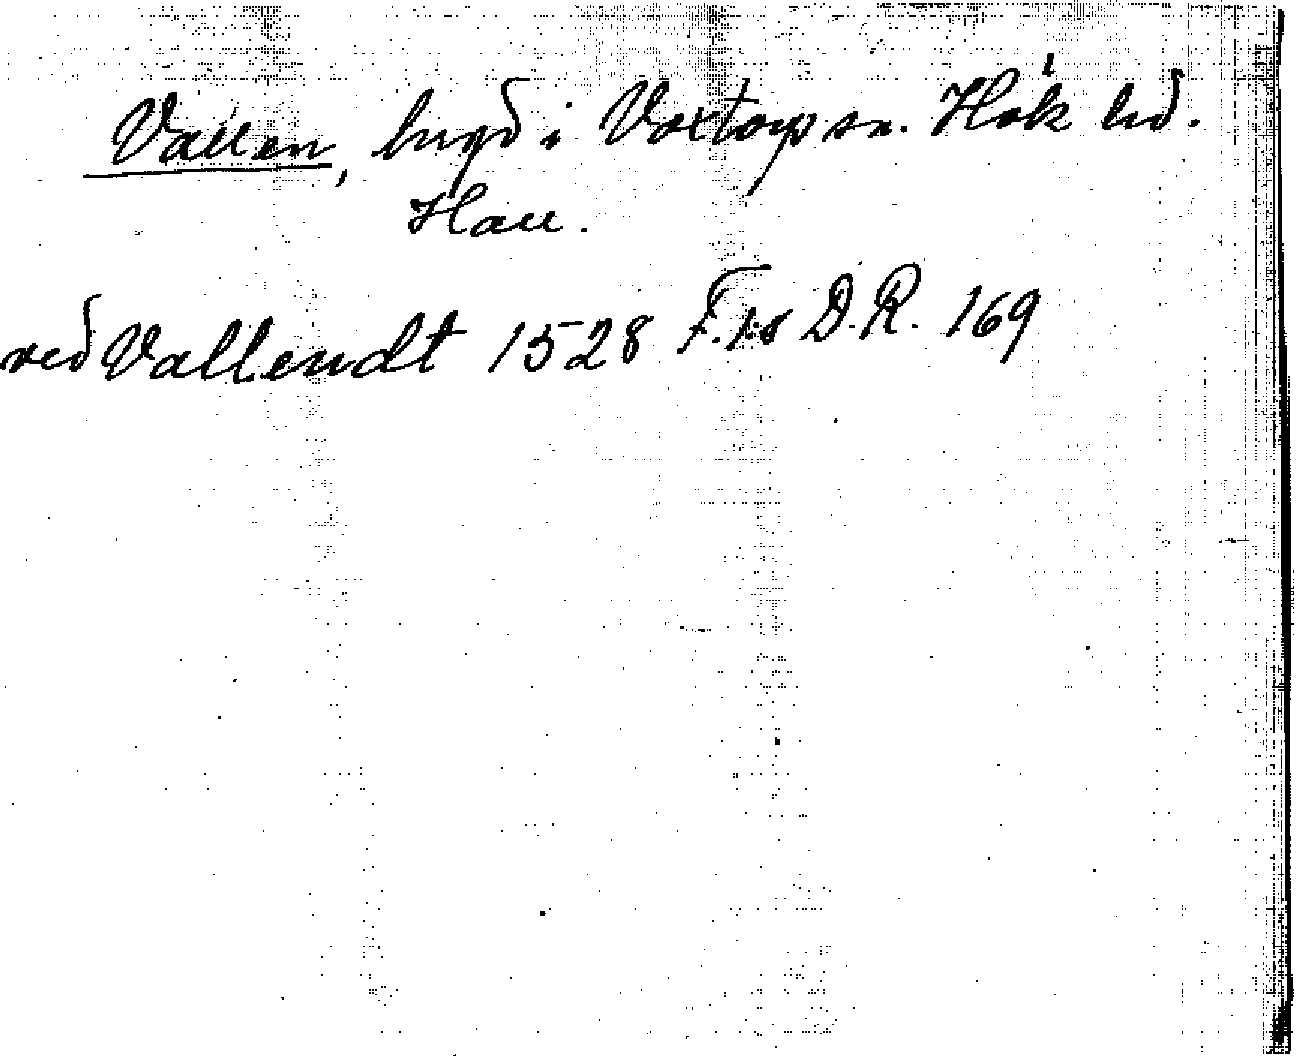 Vallen, bygd i Voxtorp sn. Hök hd.
Hall.
ved Vallendt 1528 F.1s D.R. 169